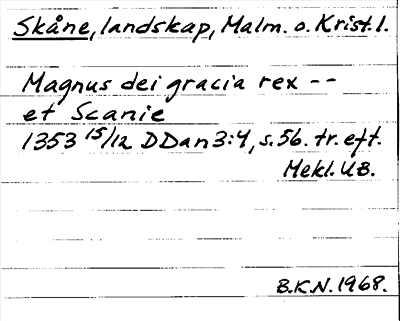 Skåne, landskap, Malm. o. Krist. l.
Magnus dei gracia rex --
et Scanie
1353 15/12 DDan 3:4, s. 56. tr. eft.
Mekl. UB.
B.K.N. 1968.